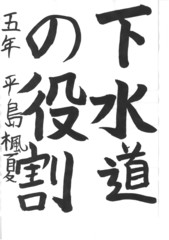 下水道
の役割
五年 平島楓夏